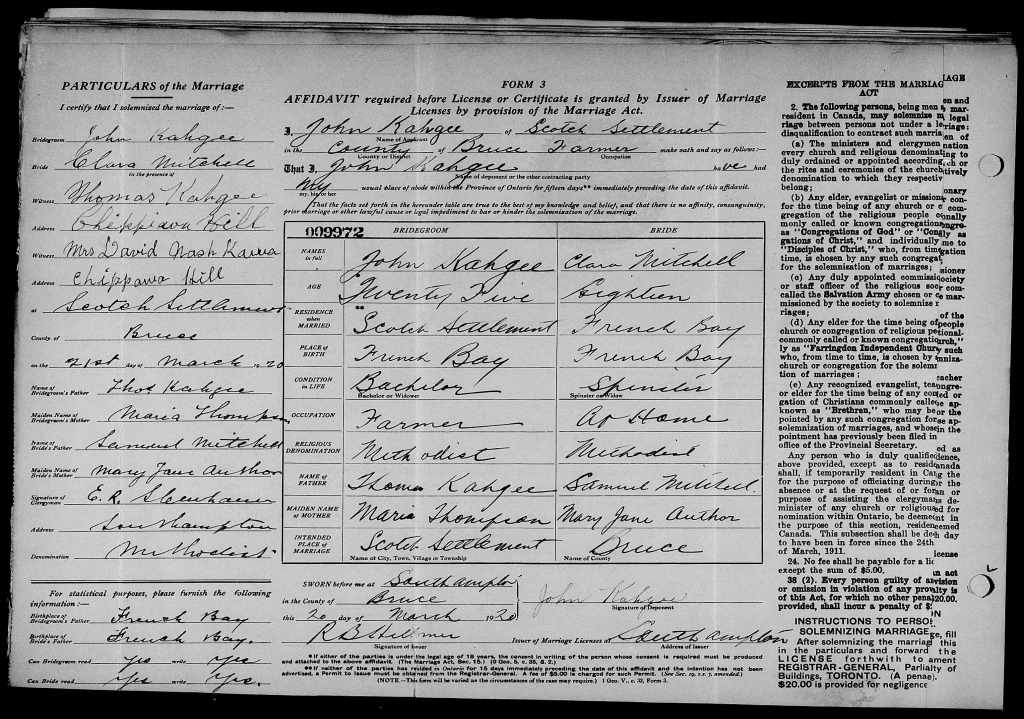 PARTICULARS of the Marriage
I certify that I solemnized the marriage of:—
Bridegroom John Kahgee
Bride Clara Mitchell
in the presence of
Witness Thomas Kahgee
Address Chippiawa Hill
Witness Mrs David Nash Kawa
Address Chippawa Hill
at Scotch Settlement
County of Bruce
on the 21st day of March 1920
Name of Bridegroom's Father Thos Kahgee
Maiden Name of Bridegroom's Mother Maria Thompson
Name of Bride's Father Samuel Mitchell
Maiden Name of Bride's Mother Mary Jane Author
Signature of Clergyman E. R.
Address Southampton
Denomination Methodist
For statistical purposes, please furnish the following
information:—
Birthplace of Bridegroom's Father French Bay
Birthplace of Bride's Father French Bay.
Can Bridegroom read Yes write Yes
Can Bride read Yes write Yes.
FORM 3
AFFIDAVIT required before License or Certificate is granted by Issuer of Marriage
Licenses by provision of the Marriage Act.
I, John Kahgee of Scotch Settlement
Name of Applicant
in the County of Bruce Farmer make oath and say as follows:
County or District Occupation
That I, John Kahgee have had
Name of deponent or the other contracting party
my usual place of abode within the Province of Ontario for fifteen days** immediately preceding the date of this affidavit.
my, his or her
That the facts set forth in the hereunder table are true to the best of my knowledge and belief, and that there is no affinity, consanguinity,
prior marriage or other lawful cause or legal impediment to bar or hinder the solemnization of the marriage.
009972 BRIDEGROOM BRIDE
NAMES in full John Kahgee Clara Mitchell
AGE Twenty Five Eighteen
RESIDENCE when MARRIED Scotch Settlement French Bay
PLACE of BIRTH French Bay French Bay
CONDITION in LIFE Bachelor Spinster
Bachelor or Widower Spinster or Widow
OCCUPATION Farmer At Home
RELIGIOUS DENOMINATION Methodist Methodist
NAME of FATHER Thomas Kahgee Samuel Mitchell
MAIDEN NAME of MOTHER Maria Thompson Mary Jane Author
INTENDED PLACE of MARRIAGE Scotch Settlement Bruce
Name of City, Town, Village or Township Name of County
SWORN before me at Southampton
in the County of Bruce
this 20 day of March 1920
John Kahgee
Signature of Deponent
Signature of Issuer
Issuer of Marriage Licenses at Southampton
Address of Issuer
*If either of the parties is under the legal age of 18 years, the consent in writing of the person whose consent is required must be produced
and attached to the above affidavit. (The Marriage Act, Sec. 15.) (1 Geo. 5, c. 35, S. 2.)
**If neither of the parties has resided in Ontario for 15 days immediately preceding the date of this affidavit and the intention has not been
advertised, a Permit to Issue must be obtained from the Registrar-General. A fee of $5.00 is charged for such Permit. (See Sec. 19, s.s. 7, amended.)
(NOTE.—This form will be varied as the circumstances of the case may require.) 1 Geo. V., c. 32, Form 3.
EXCERPTS FROM THE MARRIAG
ACT
2. The following persons, being men
resident in Canada, may solemnize m
riage between persons not under a le
disqualification to contract such marria
(a) The ministers and clergymen
every church and religious denominat
duly ordained or appointed according
the rites and ceremonies of the church
denomination to which they respectiv
belong;
(b) Any elder, evangelist or missionar
for the time being of any church or c
gregation of the religious people
monly called or known congregation
as "Congregations of God" or "Con
gations of Christ," and individually
"Disciples of Christ," who, from tim
time, is chosen by any such congregat
for the solemnisation of marriages;
(c) Any duly appointed commissi
or staff officer of the religious soc
called the Salvation Army chosen or
missioned by the society to solemnize
riages;
(d) Any elder for the time being of
church or congregation of religious pe
commonly called or known congregatio
ly as "Farringdon Independent Chur
who, from time to time, is chosen by
church or congregation for the solemn
tion of marriages;
(e) Any recognized evangelist, te
or elder for the time being of any con
gation of Christians commonly calle
known as "Brethren," who may be
pointed by any such congregation for
solemnization of marriages, and whose
pointment has previously been filed in
office of the Provincial Secretary.
Any person who is duly qualifie
above provided, except as to resid
shall, if temporarily resident in Ca
for the purpose of officiating during
absence or at the request of or for
purpose of assisting the clergyman
minister of any church or religious
nomination within Ontario, be deeme
the purpose of this section, resident
Canada. This subsection shall be de
to have been in force since the 24th
of March, 1911.
24. No fee shall be payable for a lic
except the sum of $5.00.
38 (2). Every person guilty of a
or omission in violation of any prov
of this Act, for which no other penal
provided, shall incur a penalty of $
INSTRUCTIONS TO PERSO
SOLEMNIZING MARRIAGE
After solemnizing the marriag
in the particulars and forward the
LICENSE forthwith to
REGISTRAR-GENERAL, Parlia
Buildings, TORONTO. (A pena
$20.00 is provided for negligence